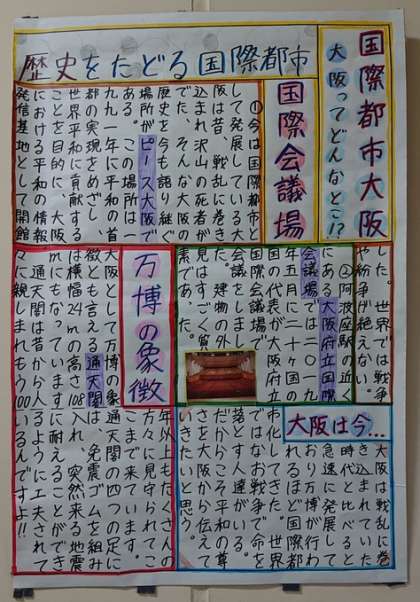 国際都市大阪
大阪ってどんなとこ!?
歴史をたどる国際都市
国際会議場
①今は国際都市と
して発展している大
阪は昔、戦乱に巻き
込まれ沢山の死者が
でた、そんな大阪の
歴史を今も語り継ぐ
場所がピース大阪で
ある。この場所は一
九九一年に平和の首
都の実現をめざし、
世界平和に貢献する
ことを目的に、大阪
における平和の情報
発信基地として開館
した。世界では戦争
や紛争が絶えない。
②阿波座駅の近く
にある大阪府立国際
会議場では二〇一九
年五月に二十ヶ国の
国の代表が大阪府立
国際会議場で
会議をしまし
た。建物の外
見はすごく質
素であった。
万博の象徴
大阪として万博の象
徴とも言える通天閣
は横幅24mの高さ108
mにもなっています。
通天閣は昔から人
々に親しまれもう100
年以上もたくさんの
方々に見守られてこ
こまで来ています。
通天閣の四つの足に
は、免震ゴムを組み
入れ、突然来る地震
に耐えることができ
るように工夫されて
いるんですよ!!
大阪は今…
大阪は戦乱に巻
き込まれていた
時代と比べると
急速に発展して
おり万博が行わ
れるほど国際都
市化してきた。世界
ではなお戦争で命を
落とす人達がいる。
だからこそ平和の尊
さを大阪から伝えて
いきたいと思う。